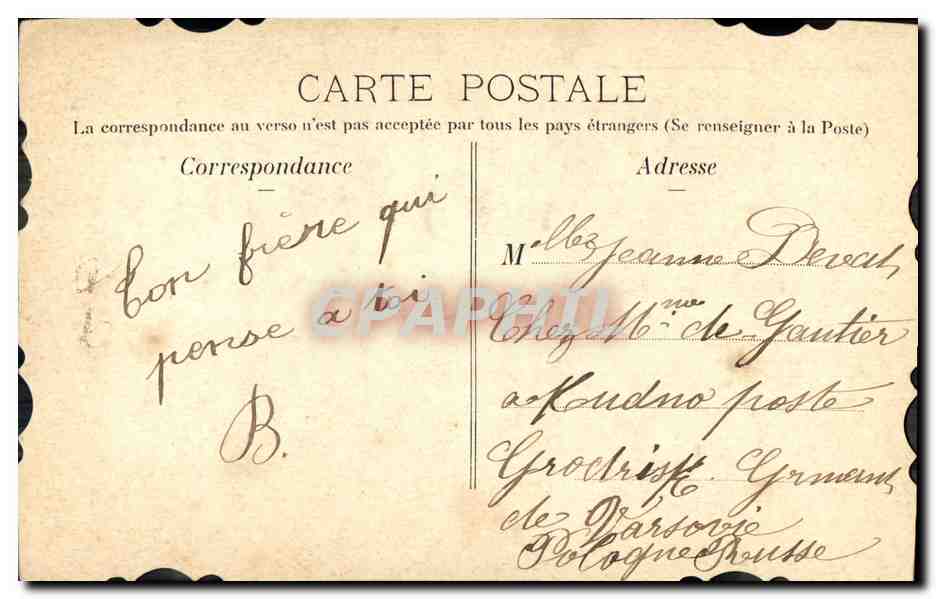 CARTE POSTALE
La correspondance au verso n'est pas acceptée par tous les pays étrangers (Se renseigner à la Poste)
Correspondance
Ton frère qui
pense a toi
B.
Adresse
Mlle Jeanne
Chez Mme de Gautier
a Kudno poste
Grodrisk
de Varsovie
Pologne Russe
CPAPHIL